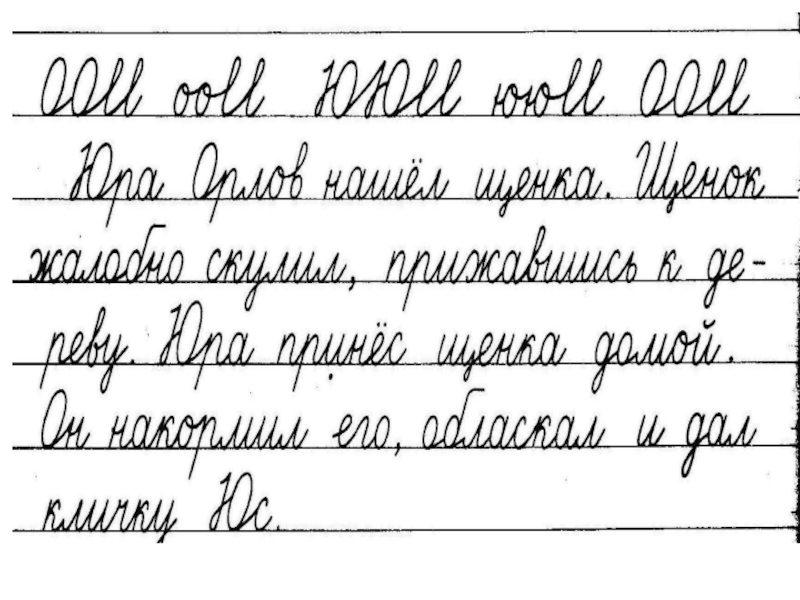 ООll ооll ЮЮll ююll ООll
Юра Орлов нашёл щенка. Щенок
жалобно скулил, прижавшись к де-
реву. Юра принёс щенка домой.
Он накормил его, обласкал и дал
кличку Юс.